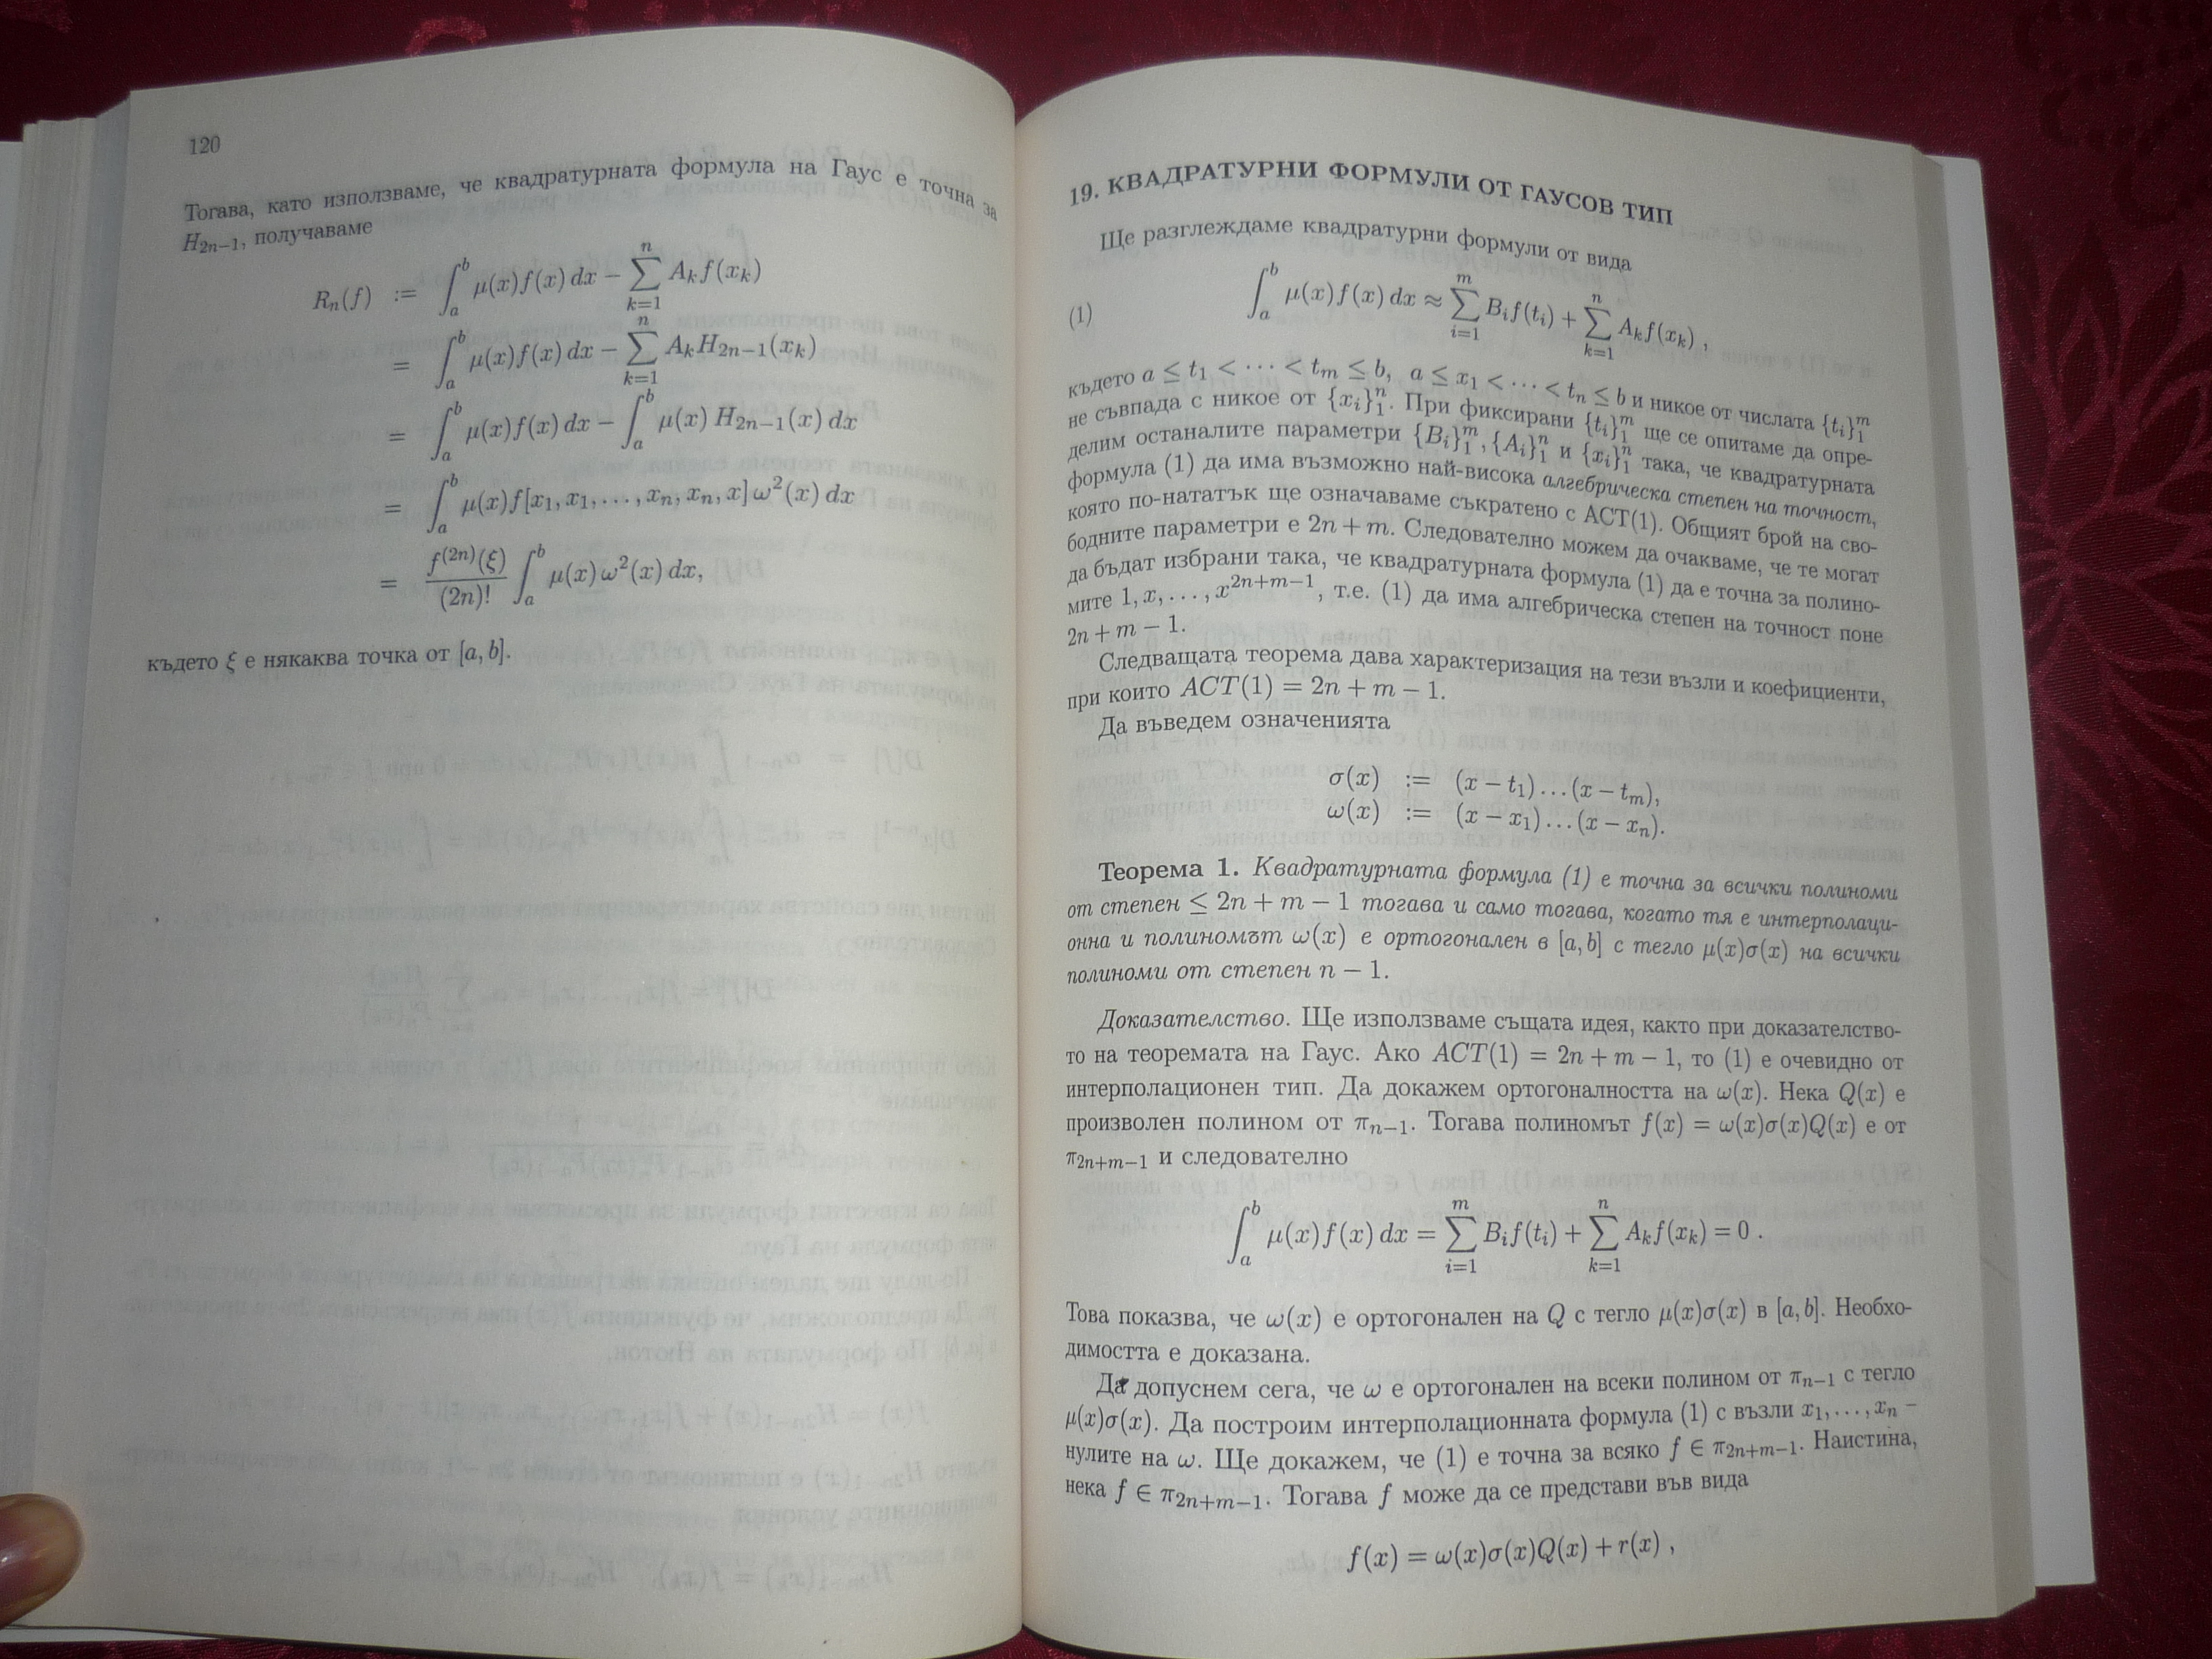 120
Тогава, като използваме, че квадратурната формула на Гаус е точна за
H_{2n−1}, получаваме
R_n(f) := ∫_a^b μ(x)f(x) dx − ∑_{k=1}^n A_k f(x_k)
= ∫_a^b μ(x)f(x) dx − ∑_{k=1}^n A_k H_{2n−1}(x_k)
= ∫_a^b μ(x)f(x) dx − ∫_a^b μ(x) H_{2n−1}(x) dx
= ∫_a^b μ(x)f[x_1, x_1, . . . , x_n, x_n, x] ω^2(x) dx
= \frac{f^{(2n)}(ξ)}{(2n)!} ∫_a^b μ(x) ω^2(x) dx,
където ξ е някаква точка от [a, b].
19. КВАДРАТУРНИ ФОРМУЛИ ОТ ГАУСОВ ТИП
Ще разглеждаме квадратурни формули от вида
(1) ∫_a^b μ(x)f(x) dx ≈ ∑_{i=1}^m B_i f(t_i) + ∑_{k=1}^n A_k f(x_k) ,
където a ≤ t_1 < · · · < t_m ≤ b, a ≤ x_1 < · · · < t_n ≤ b и никое от числата {t_i}_1^m
не съвпада с никое от {x_i}_1^n. При фиксирани {t_i}_1^m ще се опитаме да опре-
делим останалите параметри {B_i}_1^m, {A_i}_1^n и {x_i}_1^n така, че квадратурната
формула (1) да има възможно най-висока алгебрическа степен на точност,
която по-нататък ще означаваме съкратено с АСТ(1). Общият брой на сво-
бодните параметри е 2n + m. Следователно можем да очакваме, че те могат
да бъдат избрани така, че квадратурната формула (1) да е точна за полино-
мите 1, x, . . . , x^{2n+m−1}, т.е. (1) да има алгебрическа степен на точност поне
2n + m − 1.
Следващата теорема дава характеризация на тези възли и коефициенти,
при които АСТ(1) = 2n + m − 1.
Да въведем означенията
σ(x) := (x − t_1) . . . (x − t_m),
ω(x) := (x − x_1) . . . (x − x_n).
Теорема 1. Квадратурната формула (1) е точна за всички полиноми
от степен ≤ 2n + m − 1 тогава и само тогава, когато тя е интерполаци-
онна и полиномът ω(x) е ортогонален в [a, b] с тегло μ(x)σ(x) на всички
полиноми от степен n − 1.
Доказателство. Ще използваме същата идея, както при доказателство-
то на теоремата на Гаус. Ако АСТ(1) = 2n + m − 1, то (1) е очевидно от
интерполационен тип. Да докажем ортогоналността на ω(x). Нека Q(x) е
произволен полином от π_{n−1}. Тогава полиномът f(x) = ω(x)σ(x)Q(x) е от
π_{2n+m−1} и следователно
∫_a^b μ(x)f(x) dx = ∑_{i=1}^m B_i f(t_i) + ∑_{k=1}^n A_k f(x_k) = 0 .
Това показва, че ω(x) е ортогонален на Q с тегло μ(x)σ(x) в [a, b]. Необхо-
димостта е доказана.
Да допуснем сега, че ω е ортогонален на всеки полином от π_{n−1} с тегло
μ(x)σ(x). Да построим интерполационната формула (1) с възли x_1, . . . , x_n –
нулите на ω. Ще докажем, че (1) е точна за всяко f ∈ π_{2n+m−1}. Наистина,
нека f ∈ π_{2n+m−1}. Тогава f може да се представи във вида
f(x) = ω(x)σ(x)Q(x) + r(x) ,